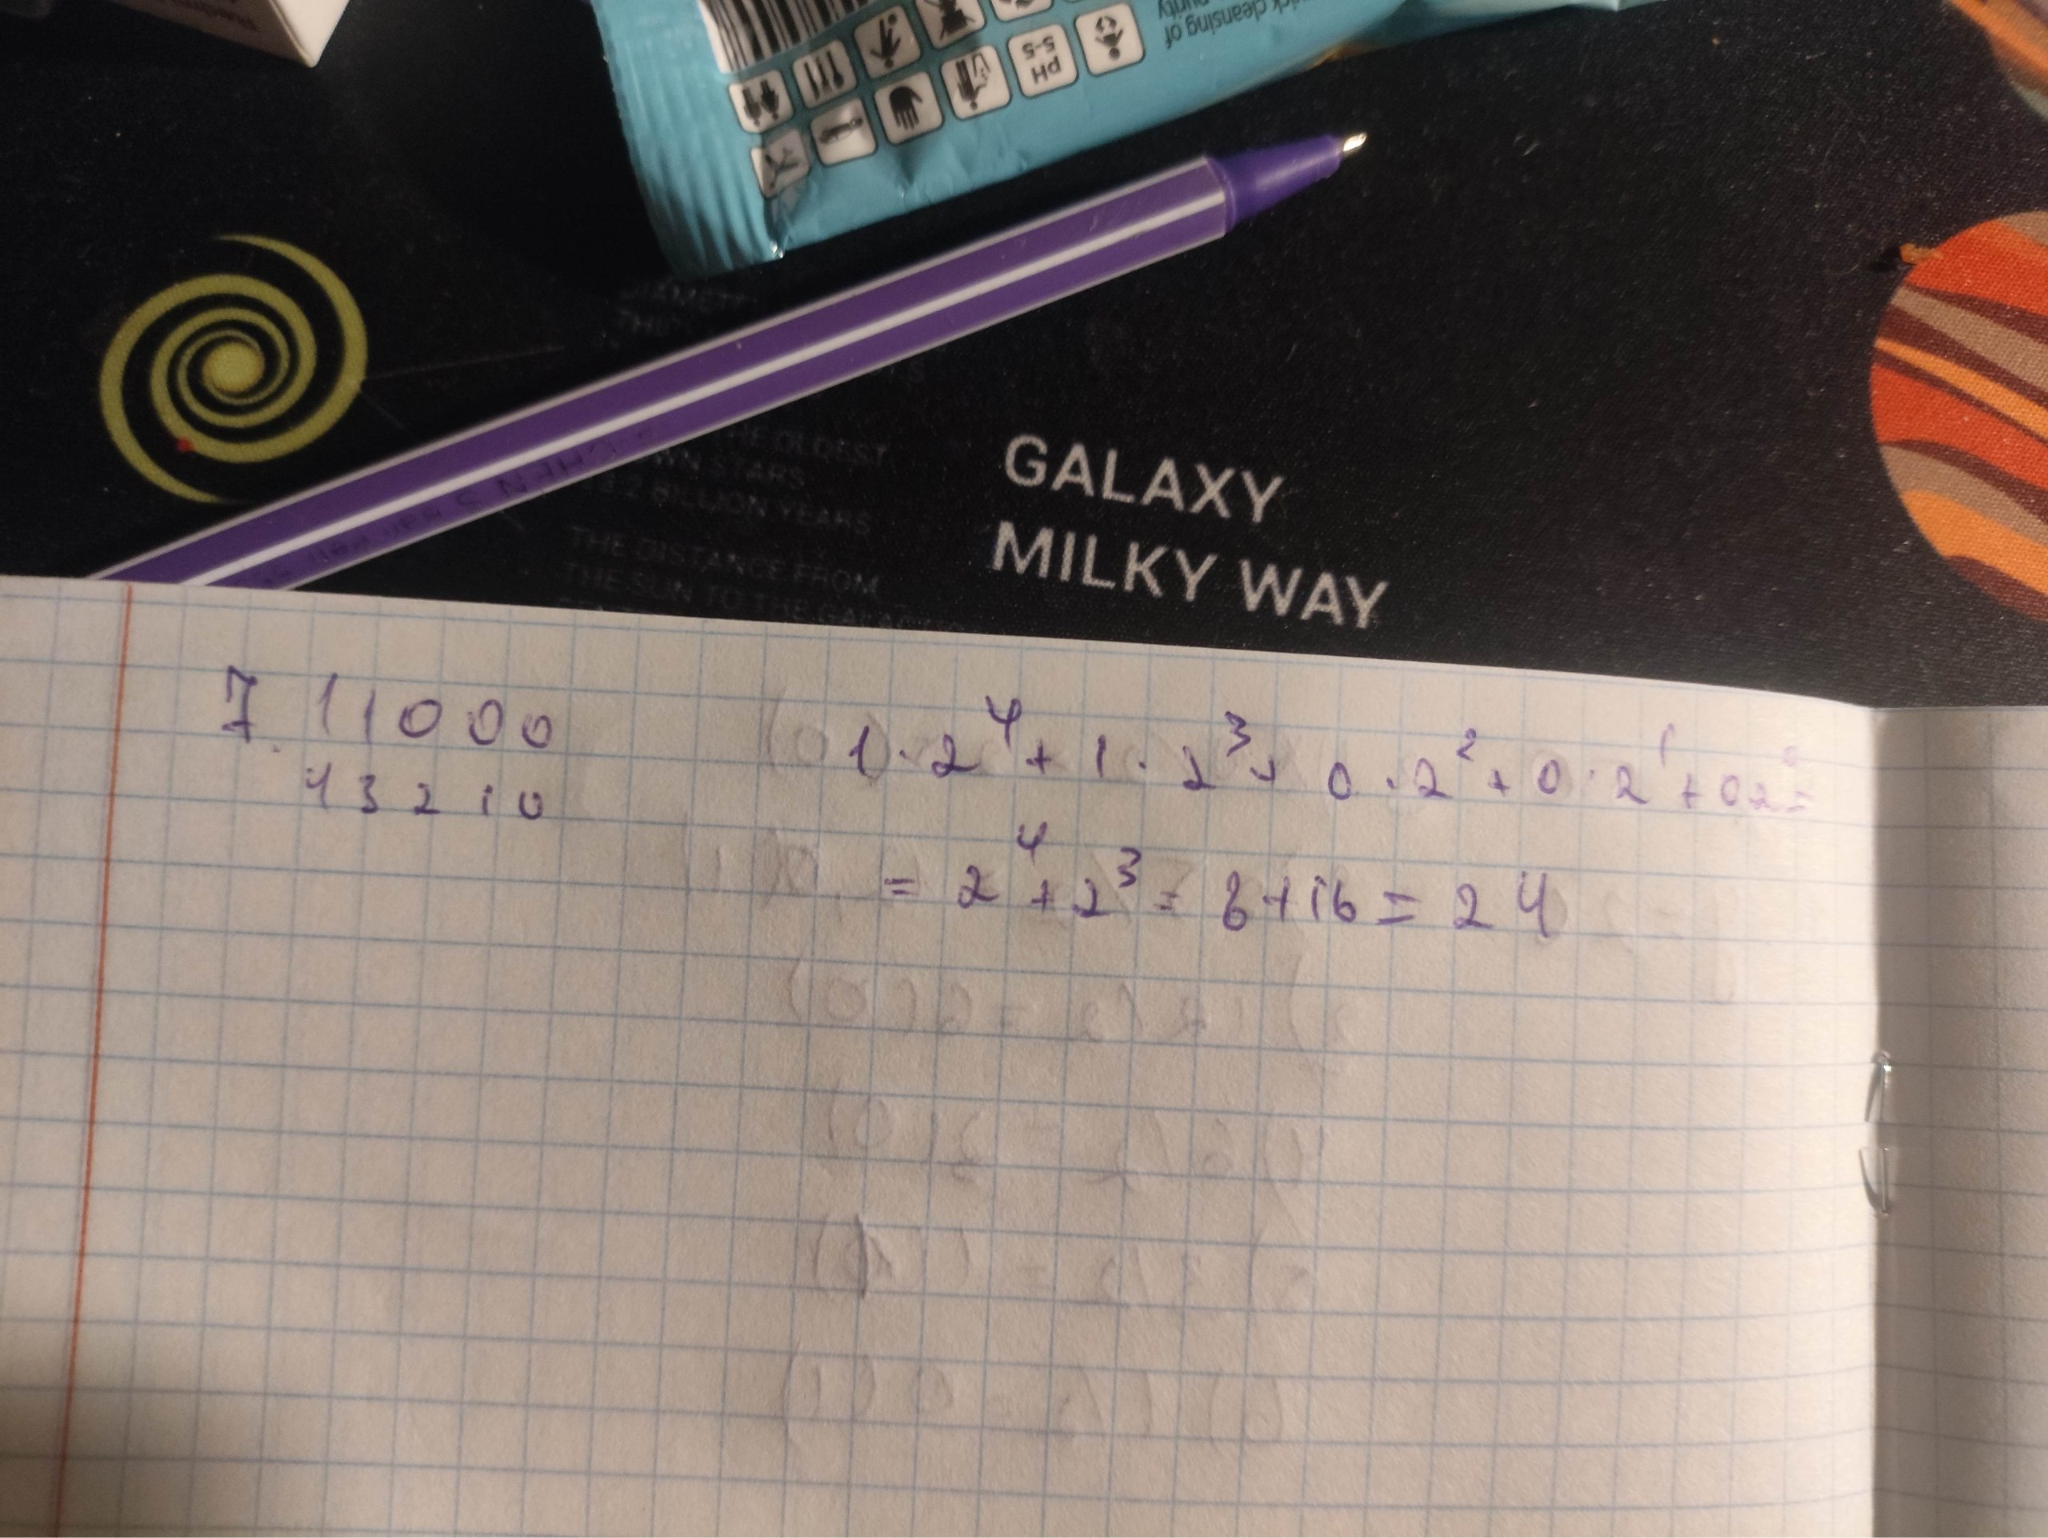 quick cleansing of
purity
pH
5-5
THE OLDEST
KNOWN STARS
13.2 BILLION YEARS
THE DISTANCE FROM
THE SUN TO THE GALACTIC
GALAXY
MILKY WAY
7. 11000
43210
1·2⁴+1·2³+0·2²+0·2¹+02⁰=
=2⁴+2³=8+16=24